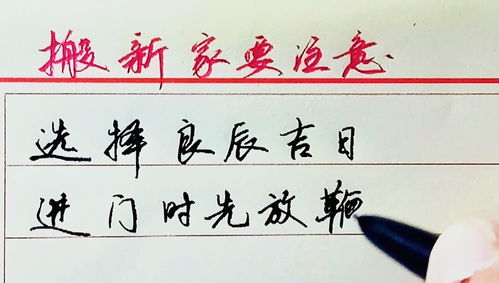 搬新家要注意
选择良辰吉日
进门时先放鞭